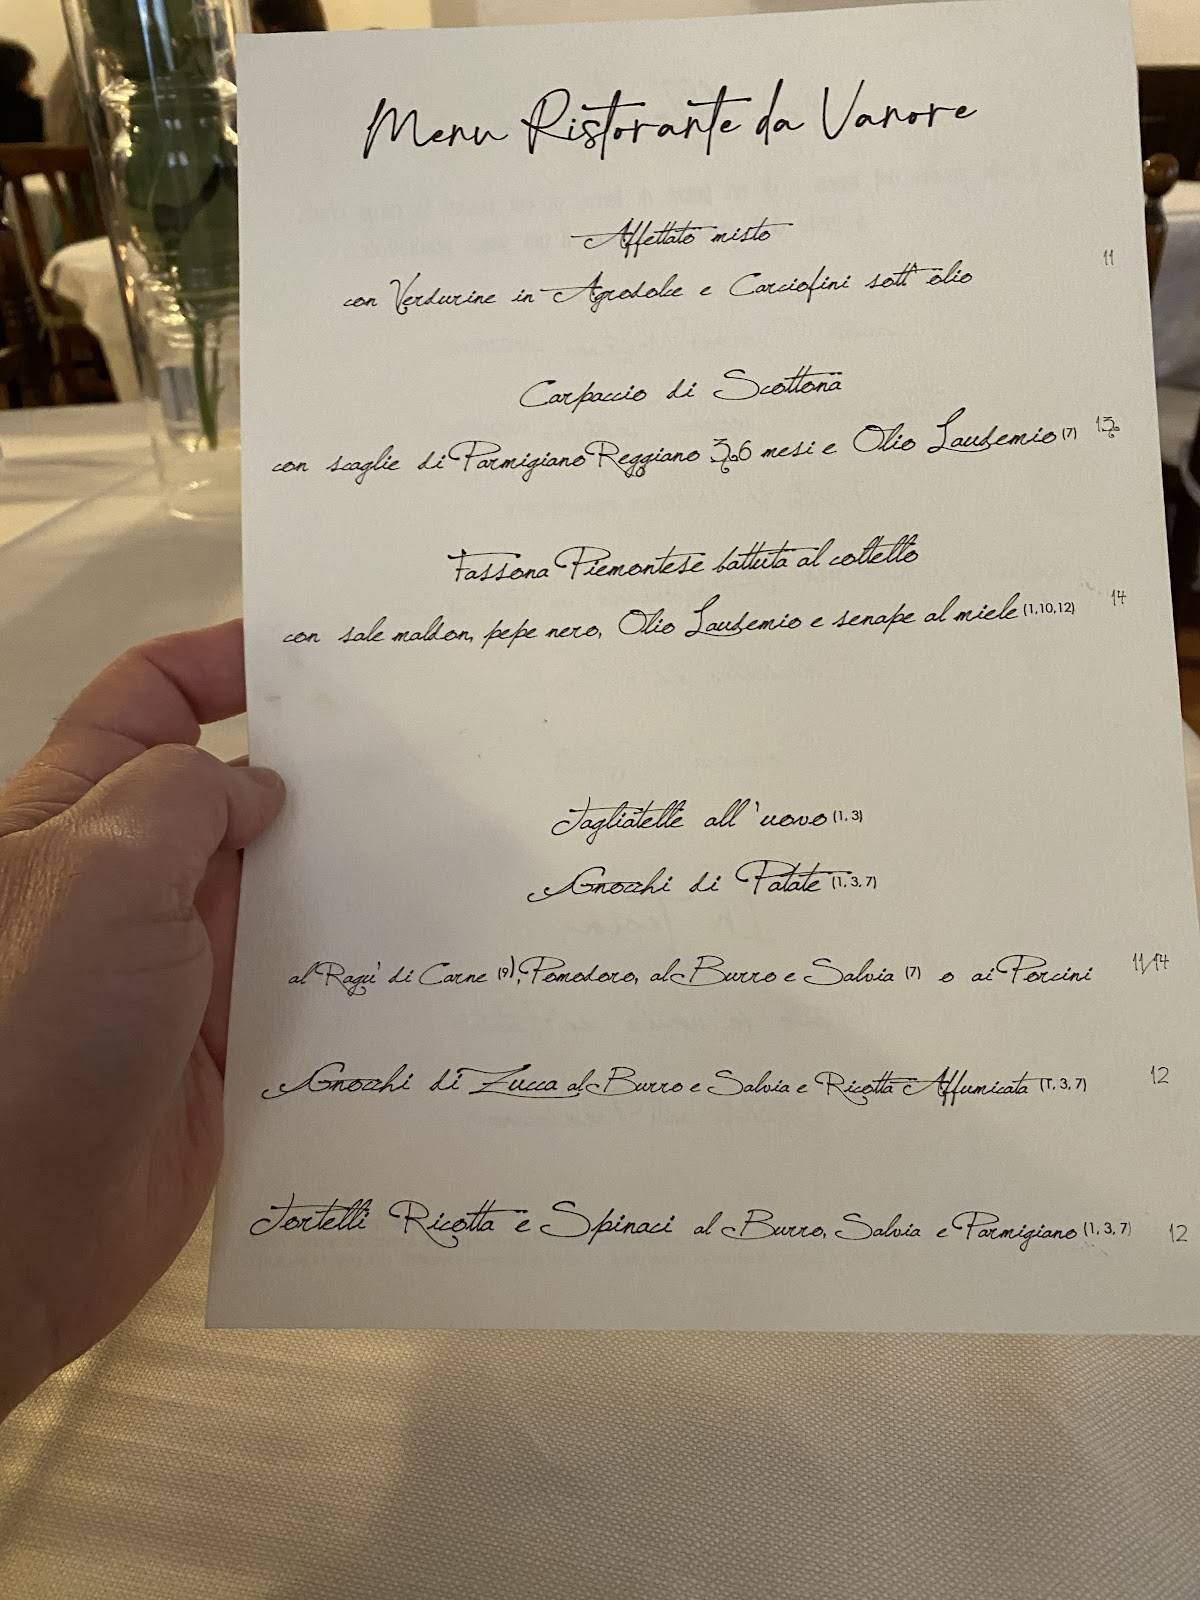 Menu Ristorante da Vanore
Affettato misto
con Verdurine in Agrodolce e Carciofini sott' olio 11
Carpaccio di Scottona
con scaglie di Parmigiano Reggiano 36 mesi e Olio Laudemio (7) 13
Fassona Piemontese battuta al coltello
con sale maldon, pepe nero, Olio Laudemio e senape al miele (1,10,12) 14
Tagliatelle all'uovo (1, 3)
Gnocchi di Patate (1, 3, 7)
al Ragu' di Carne (9), Pomodoro, al Burro e Salvia (7) o ai Porcini 11/14
Gnocchi di Zucca al Burro e Salvia e Ricotta Affumicata (1, 3, 7) 12
Tortelli Ricotta e Spinaci al Burro, Salvia e Parmigiano (1, 3, 7) 12